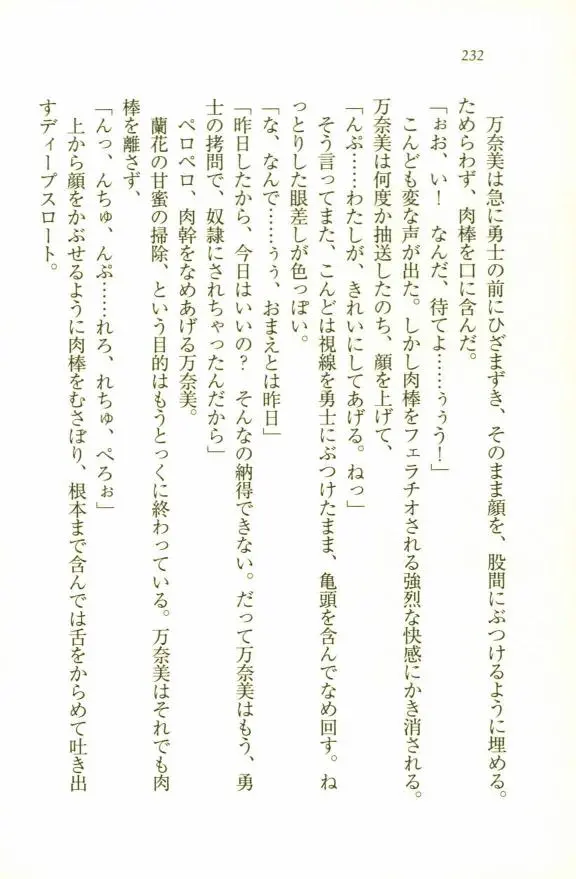 232
万奈美は急に勇士の前にひざまずき、そのまま顔を、股間にぶつけるように埋める。
ためらわず、肉棒を口に含んだ。
「ぉお、い！　なんだ、待てよ……ぅぅう！」
こんども変な声が出た。しかし肉棒をフェラチオされる強烈な快感にかき消される。
万奈美は何度か抽送したのち、顔を上げて、
「んぷ……わたしが、きれいにしてあげる。ねっ」
そう言ってまた、こんどは視線を勇士にぶつけたまま、亀頭を含んでなめ回す。ね
っとりした眼差しが色っぽい。
「な、なんで……ぅぅ、おまえとは昨日」
「昨日したから、今日はいいの？　そんなの納得できない。だって万奈美はもう、勇
士の拷問で、奴隷にされちゃったんだから」
ペロペロ、肉幹をなめあげる万奈美。
蘭花の甘蜜の掃除、という目的はもうとっくに終わっている。万奈美はそれでも肉
棒を離さず、
「んっ、んちゅ、んぷ……れろ、れちゅ、ぺろぉ」
上から顔をかぶせるように肉棒をむさぼり、根本まで含んでは舌をからめて吐き出
すディープスロート。